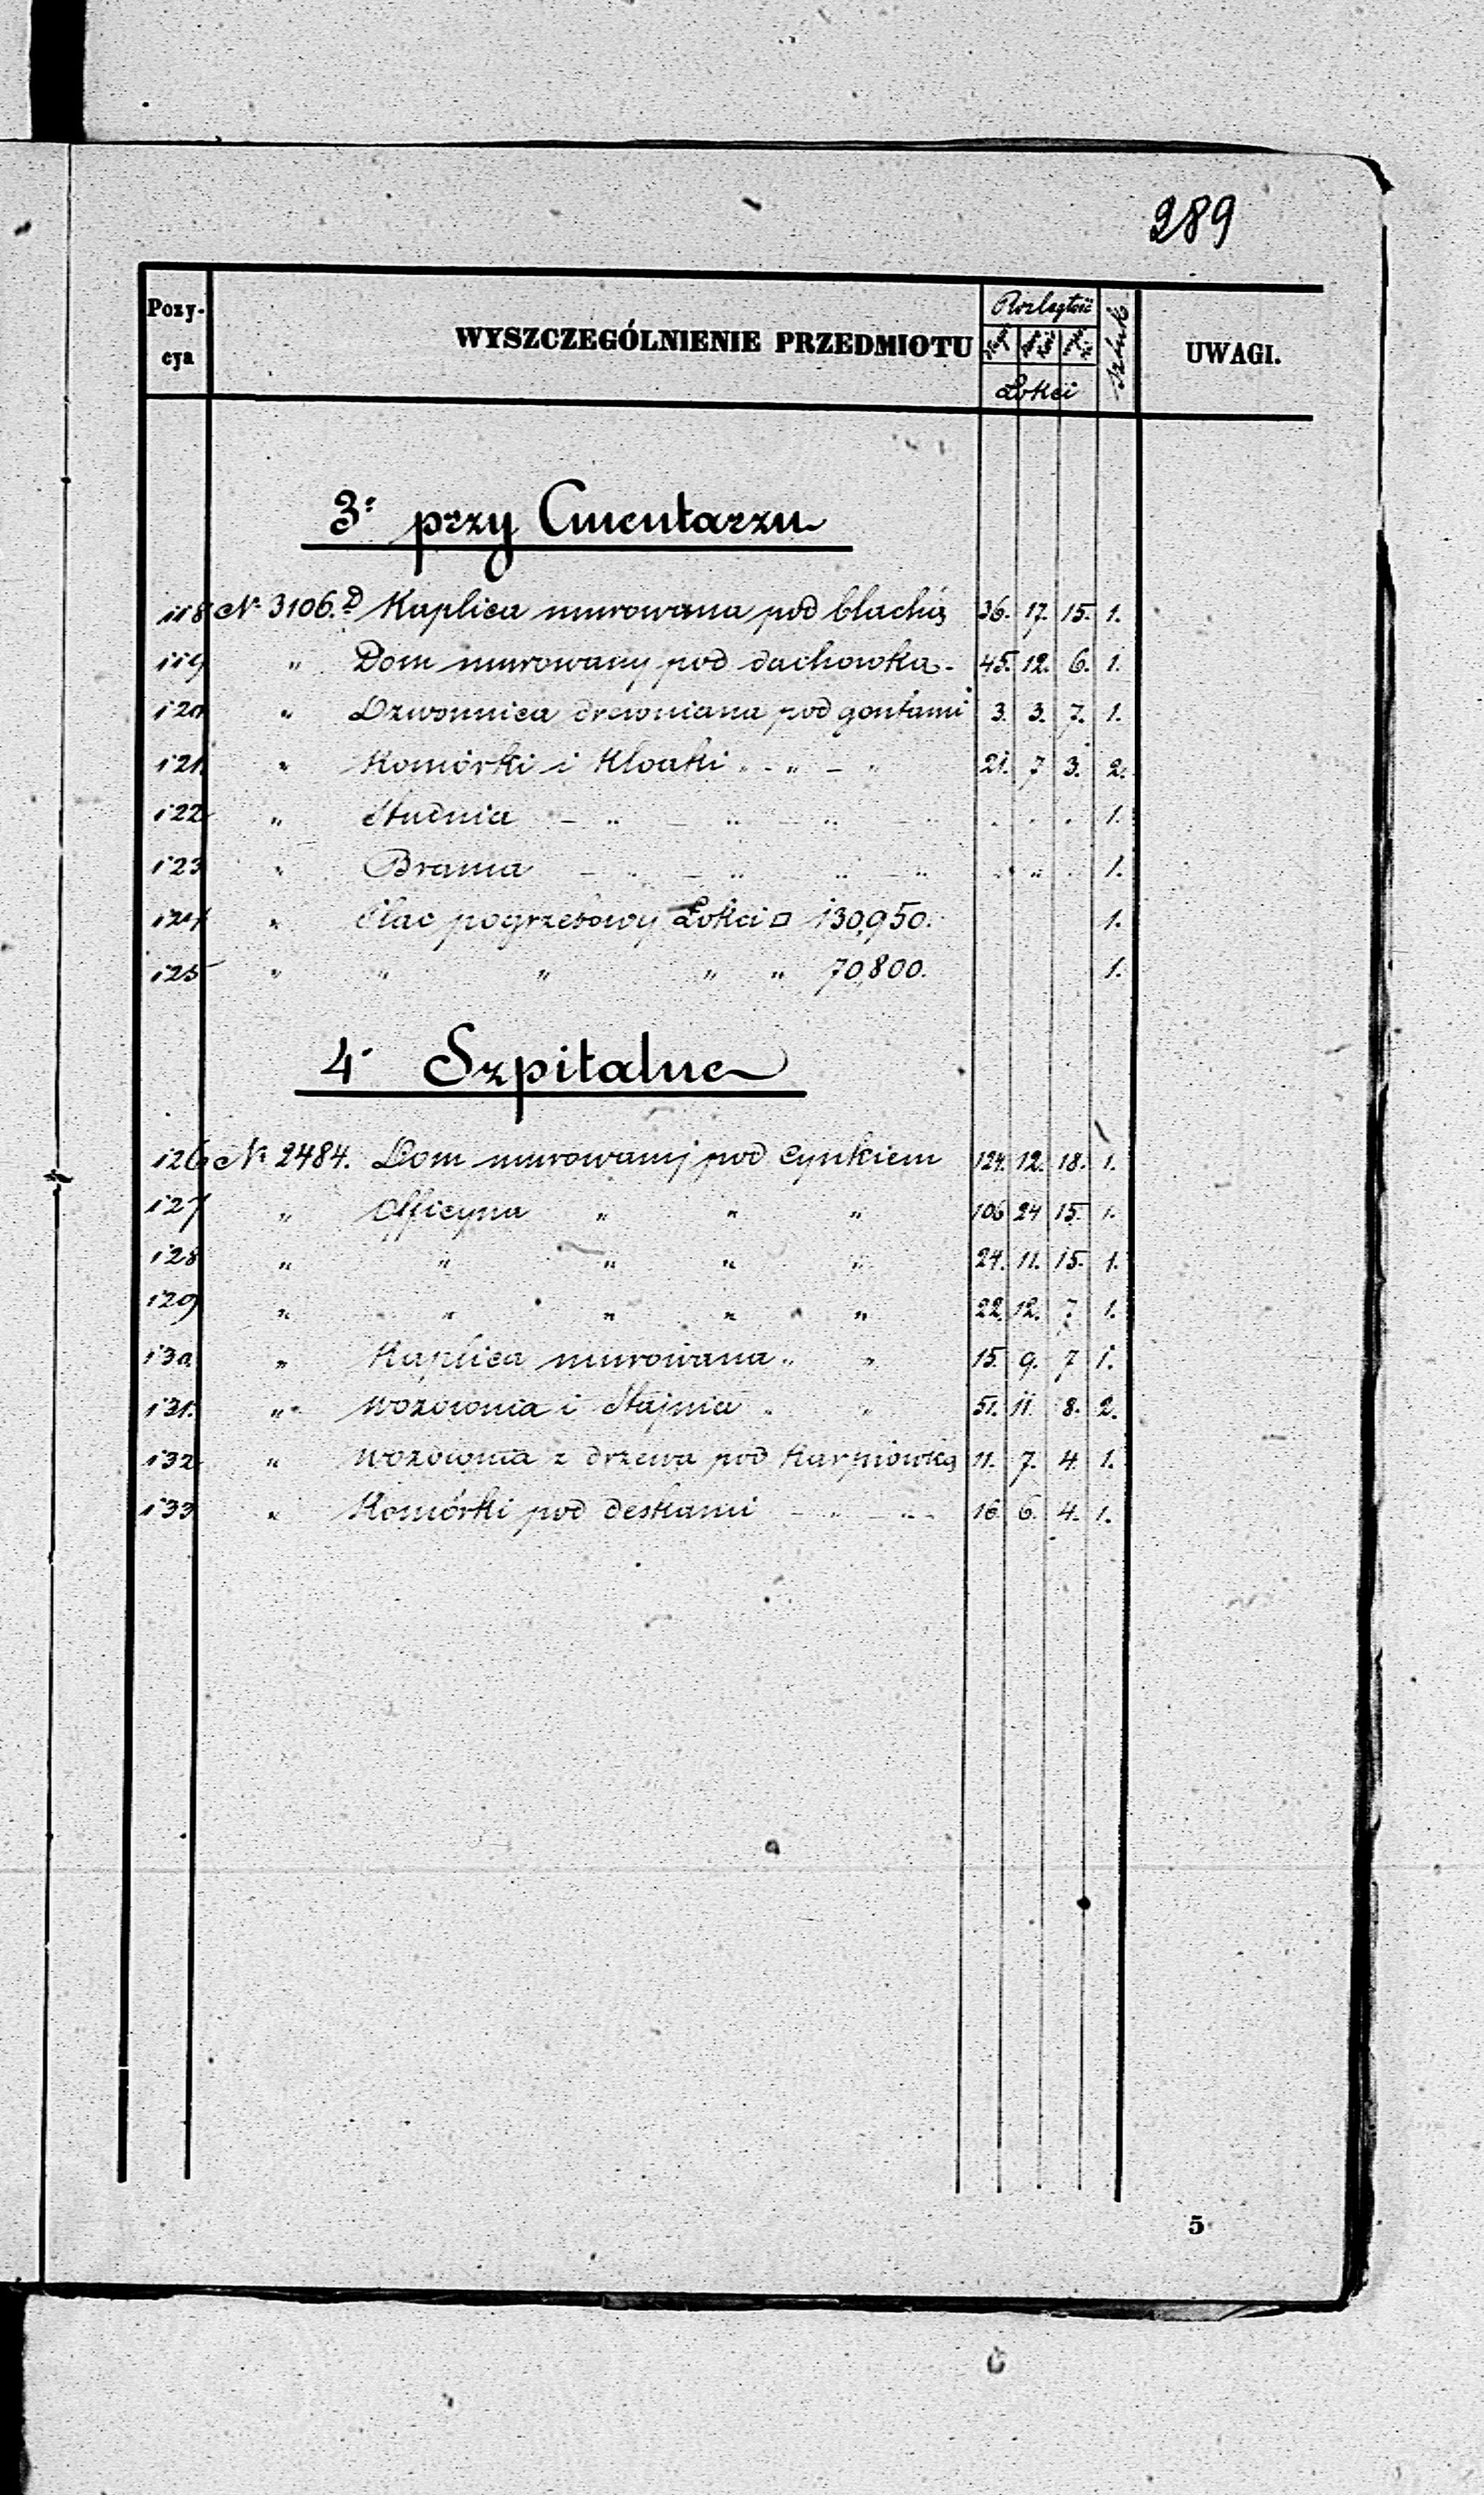 289
Pozy-
cya
WYSZCZEGÓLNIENIE PRZEDMIOTU
Rozległość
Łokci
Sztuk
UWAGI.
3. przy Cmentarzu
118 N. 3106.D Kaplica murowana pod blachą 36. 17. 15. 1.
119 " Dom murowany pod dachowką - 45. 12. 6. 1.
120 " Dzwonnica drewniana pod gontami 3. 3. 7. 1.
121 " Komórki i Kloaki " - " - " 21. 7 3. 2.
122 " Studnia - " - " - " - " . . . 1.
123 " Brama - " - " " - " . " . 1.
124 " Plac pogrzebowy Łokci □ 130,950. 1.
125 " " " " " 70,800. 1.
4. Szpitalne
126 N. 2484. Dom murowany pod cynkiem 124. 12. 18. 1.
127 " Officyna " " " 106 24 15. 1.
128 " " " " " 24. 11. 15. 1.
129 " " " " " 22. 12. 7 1.
130 " Kaplica murowana " " 15. 9. 7 1.
131. " Wozownia i Stajnia " " 51. 11. 8. 2.
132 " Wozownia z drzewa pod Karpiówką 11. 7. 4. 1.
133 " Komórki pod deskami - " - " - 16 6. 4. 1.
5